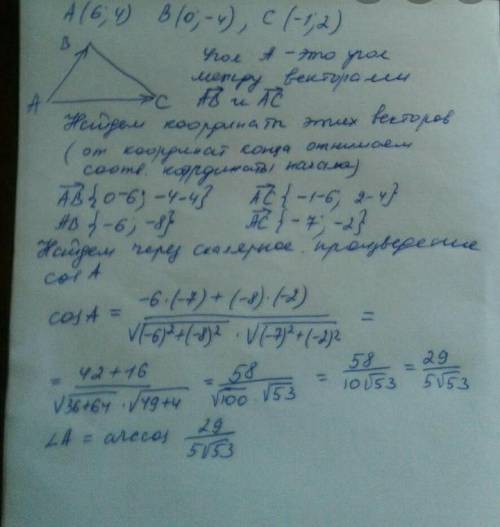 A(6; 4) B(0; -4), C(-1; 2)
B
A
C
Угол A - это угол
между векторами
AB и AC
Найдем координаты этих векторов
(от координат конца отнимаем
соотв. координаты начала)
AB{0-6; -4-4} AC{-1-6; 2-4}
AB{-6; -8} AC{-7; -2}
Найдем через скалярное произведение
cos A
cos A = (-6·(-7) + (-8)·(-2)) / (√((-6)²+(-8)²) · √((-7)²+(-2)²)) =
= (42+16) / (√(36+64) · √(49+4)) = 58 / (√100 · √53) = 58 / (10√53) = 29 / (5√53)
∠A = arccos 29 / (5√53)